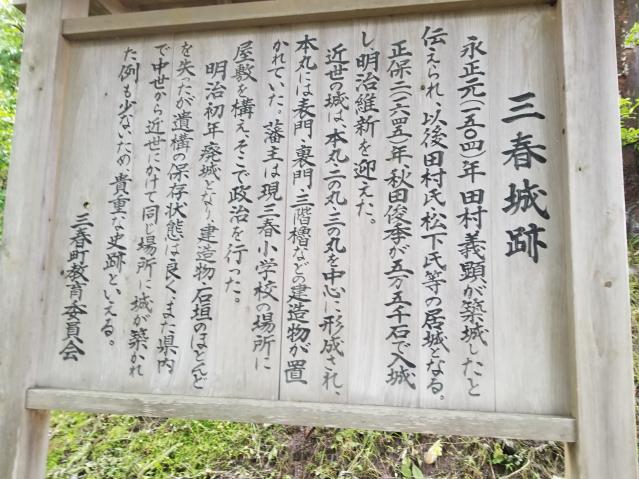 三春城跡
永正元(一五〇四)年田村義顕が築城したと
伝えられ、以後田村氏、松下氏等の居城となる。
正保二(一六四五)年、秋田俊季が五万五千石で入城
し、明治維新を迎えた。
近世の城は、本丸、二の丸、三の丸を中心に形成され、
本丸には表門、裏門、三階櫓などの建造物が置
かれていた。藩主は現三春小学校の場所に
屋敷を構え、そこで政治を行った。
明治初年廃城となり、建造物、石垣のほとんど
を失ったが遺構の保存状態は良く、また県内
で中世から近世にかけて同じ場所に城が築かれ
た例も少ないため、貴重な史跡といえる。
三春町教育委員会